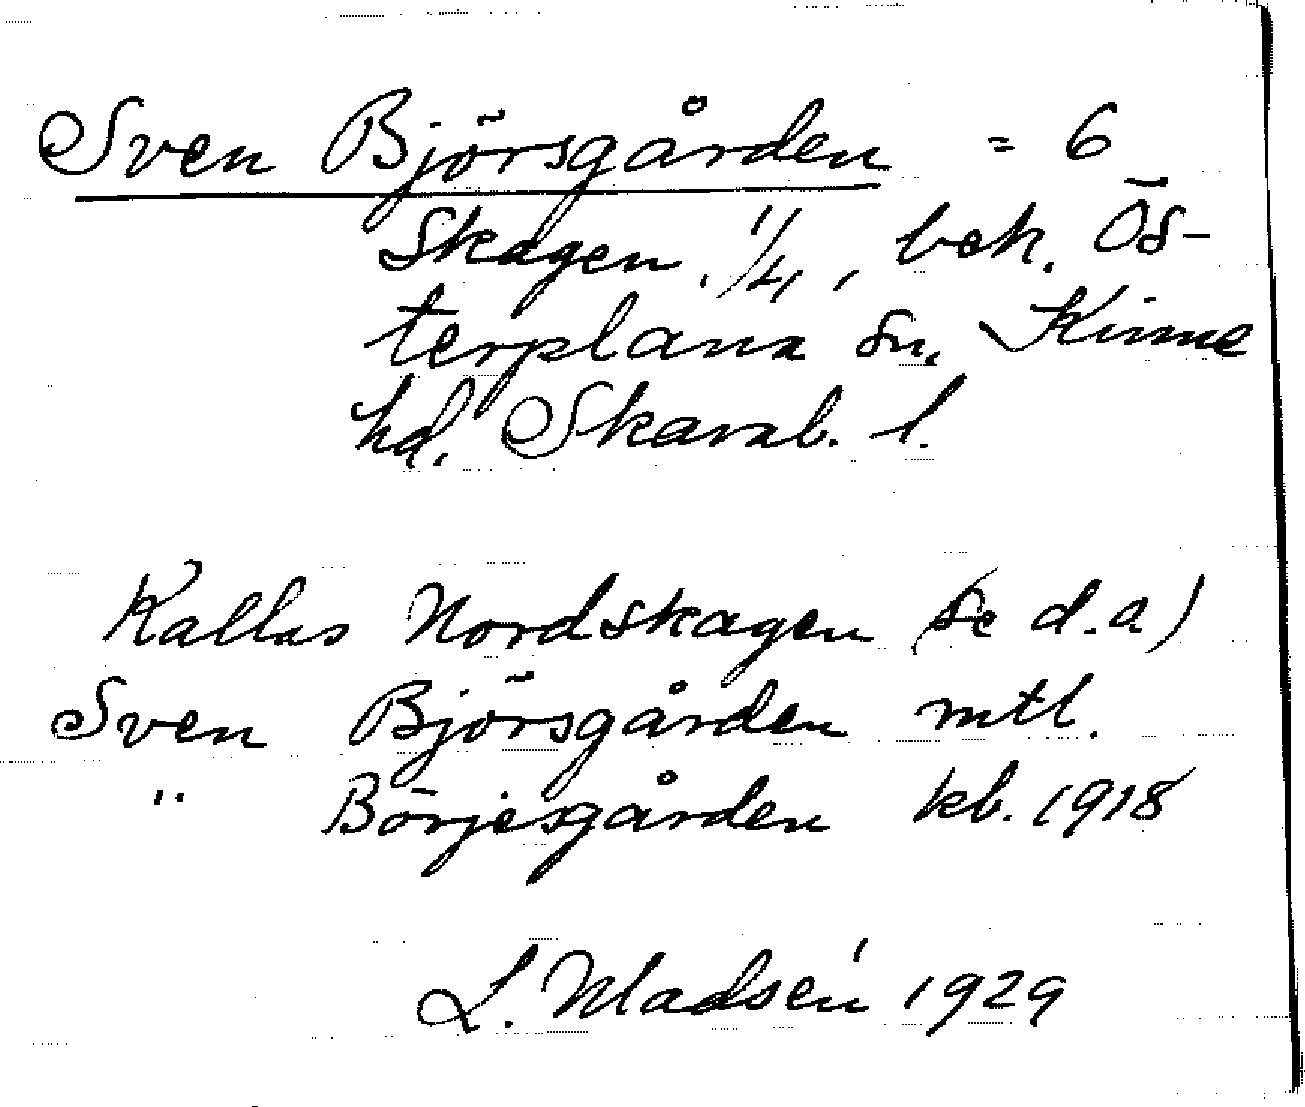 Sven Björsgården = 6
Skagen, 1/4, bek. Ös-
terplana sn. Kinne
hd. Skarab. l.
Kallas Nordskagen (se d.a)
Sven Björsgården mtl.
" Börjesgården kb. 1918
L. Madsén 1929